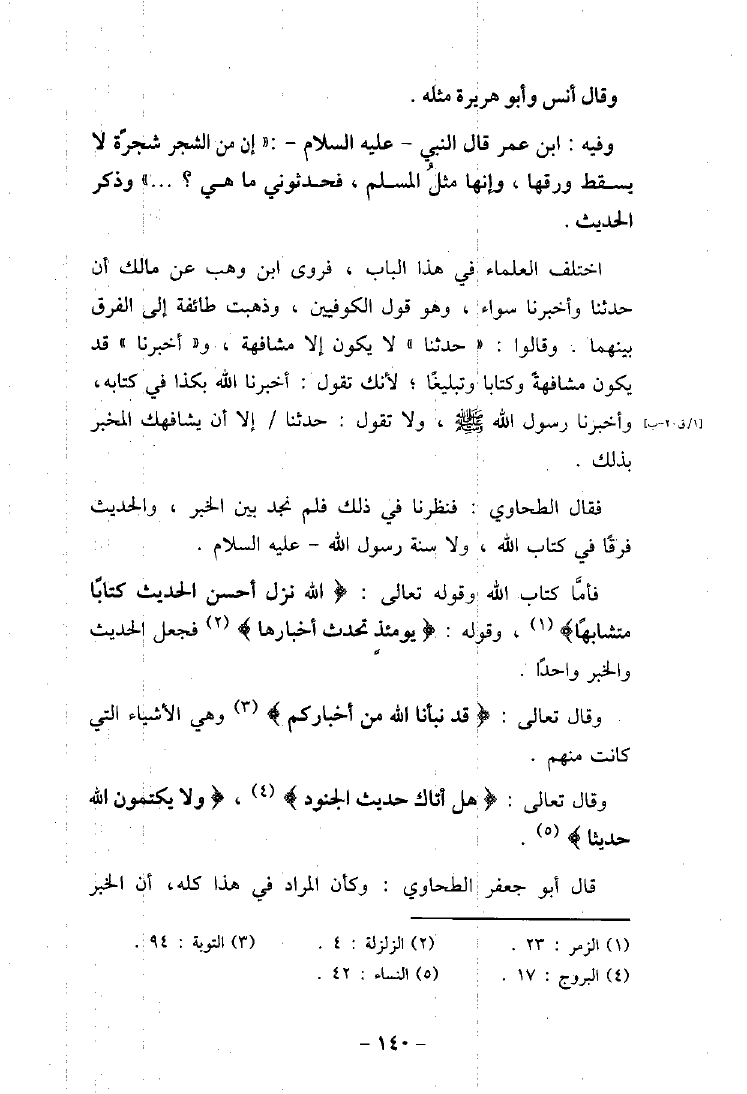 وقال أنس وأبو هريرة مثله .
وفيه : ابن عمر قال النبي – عليه السلام – :« إن من الشجر شجرًة لا
يسقط ورقها ، وإنها مثلُ المسلم ، فحدثوني ما هي ؟ ...» وذكر
الحديث .
اختلف العلماء في هذا الباب ، فروى ابن وهب عن مالك أن
حدثنا وأخبرنا سواء ، وهو قول الكوفيين ، وذهبت طائفة إلى الفرق
بينهما . وقالوا : « حدثنا » لا يكون إلا مشافهة ، و« أخبرنا » قد
يكون مشافهةً وكتابا وتبليغًا ؛ لأنك تقول : أخبرنا الله بكذا في كتابه،
وأخبرنا رسول الله ﷺ ، ولا تقول : حدثنا / إلا أن يشافهك المخبر [١/ق٢٠-ب]
بذلك .
فقال الطحاوي : فنظرنا في ذلك فلم نجد بين الخبر ، والحديث
فرقًا في كتاب الله ، ولا سنة رسول الله – عليه السلام .
فأمَّا كتاب الله وقوله تعالى : ﴿ الله نزل أحسن الحديث كتابًا
متشابهًا﴾ (١) ، وقوله : ﴿ يومئذٍ تحدث أخبارها ﴾ (٢) فجعل الحديث
والخبر واحدًا .
وقال تعالى : ﴿ قد نبأنا الله من أخباركم ﴾ (٣) وهي الأشياء التي
كانت منهم .
وقال تعالى : ﴿ هل أتاك حديث الجنود ﴾ (٤) ، ﴿ ولا يكتمون الله
حديثا ﴾ (٥) .
قال أبو جعفر الطحاوي : وكأن المراد في هذا كله، أن الخبر
(١) الزمر : ٢٣ . (٢) الزلزلة : ٤ . (٣) التوبة : ٩٤ .
(٤) البروج : ١٧ . (٥) النساء : ٤٢ .
– ١٤٠ –